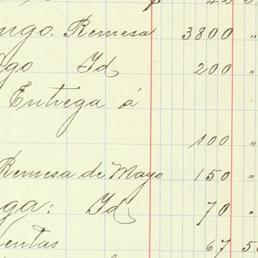 ngo. Remesa 3800 "
go Id 200 "
Entrega á
100 "
Remesa de Mayo 150 "
ga: Id 70 "
Ventas 67 5